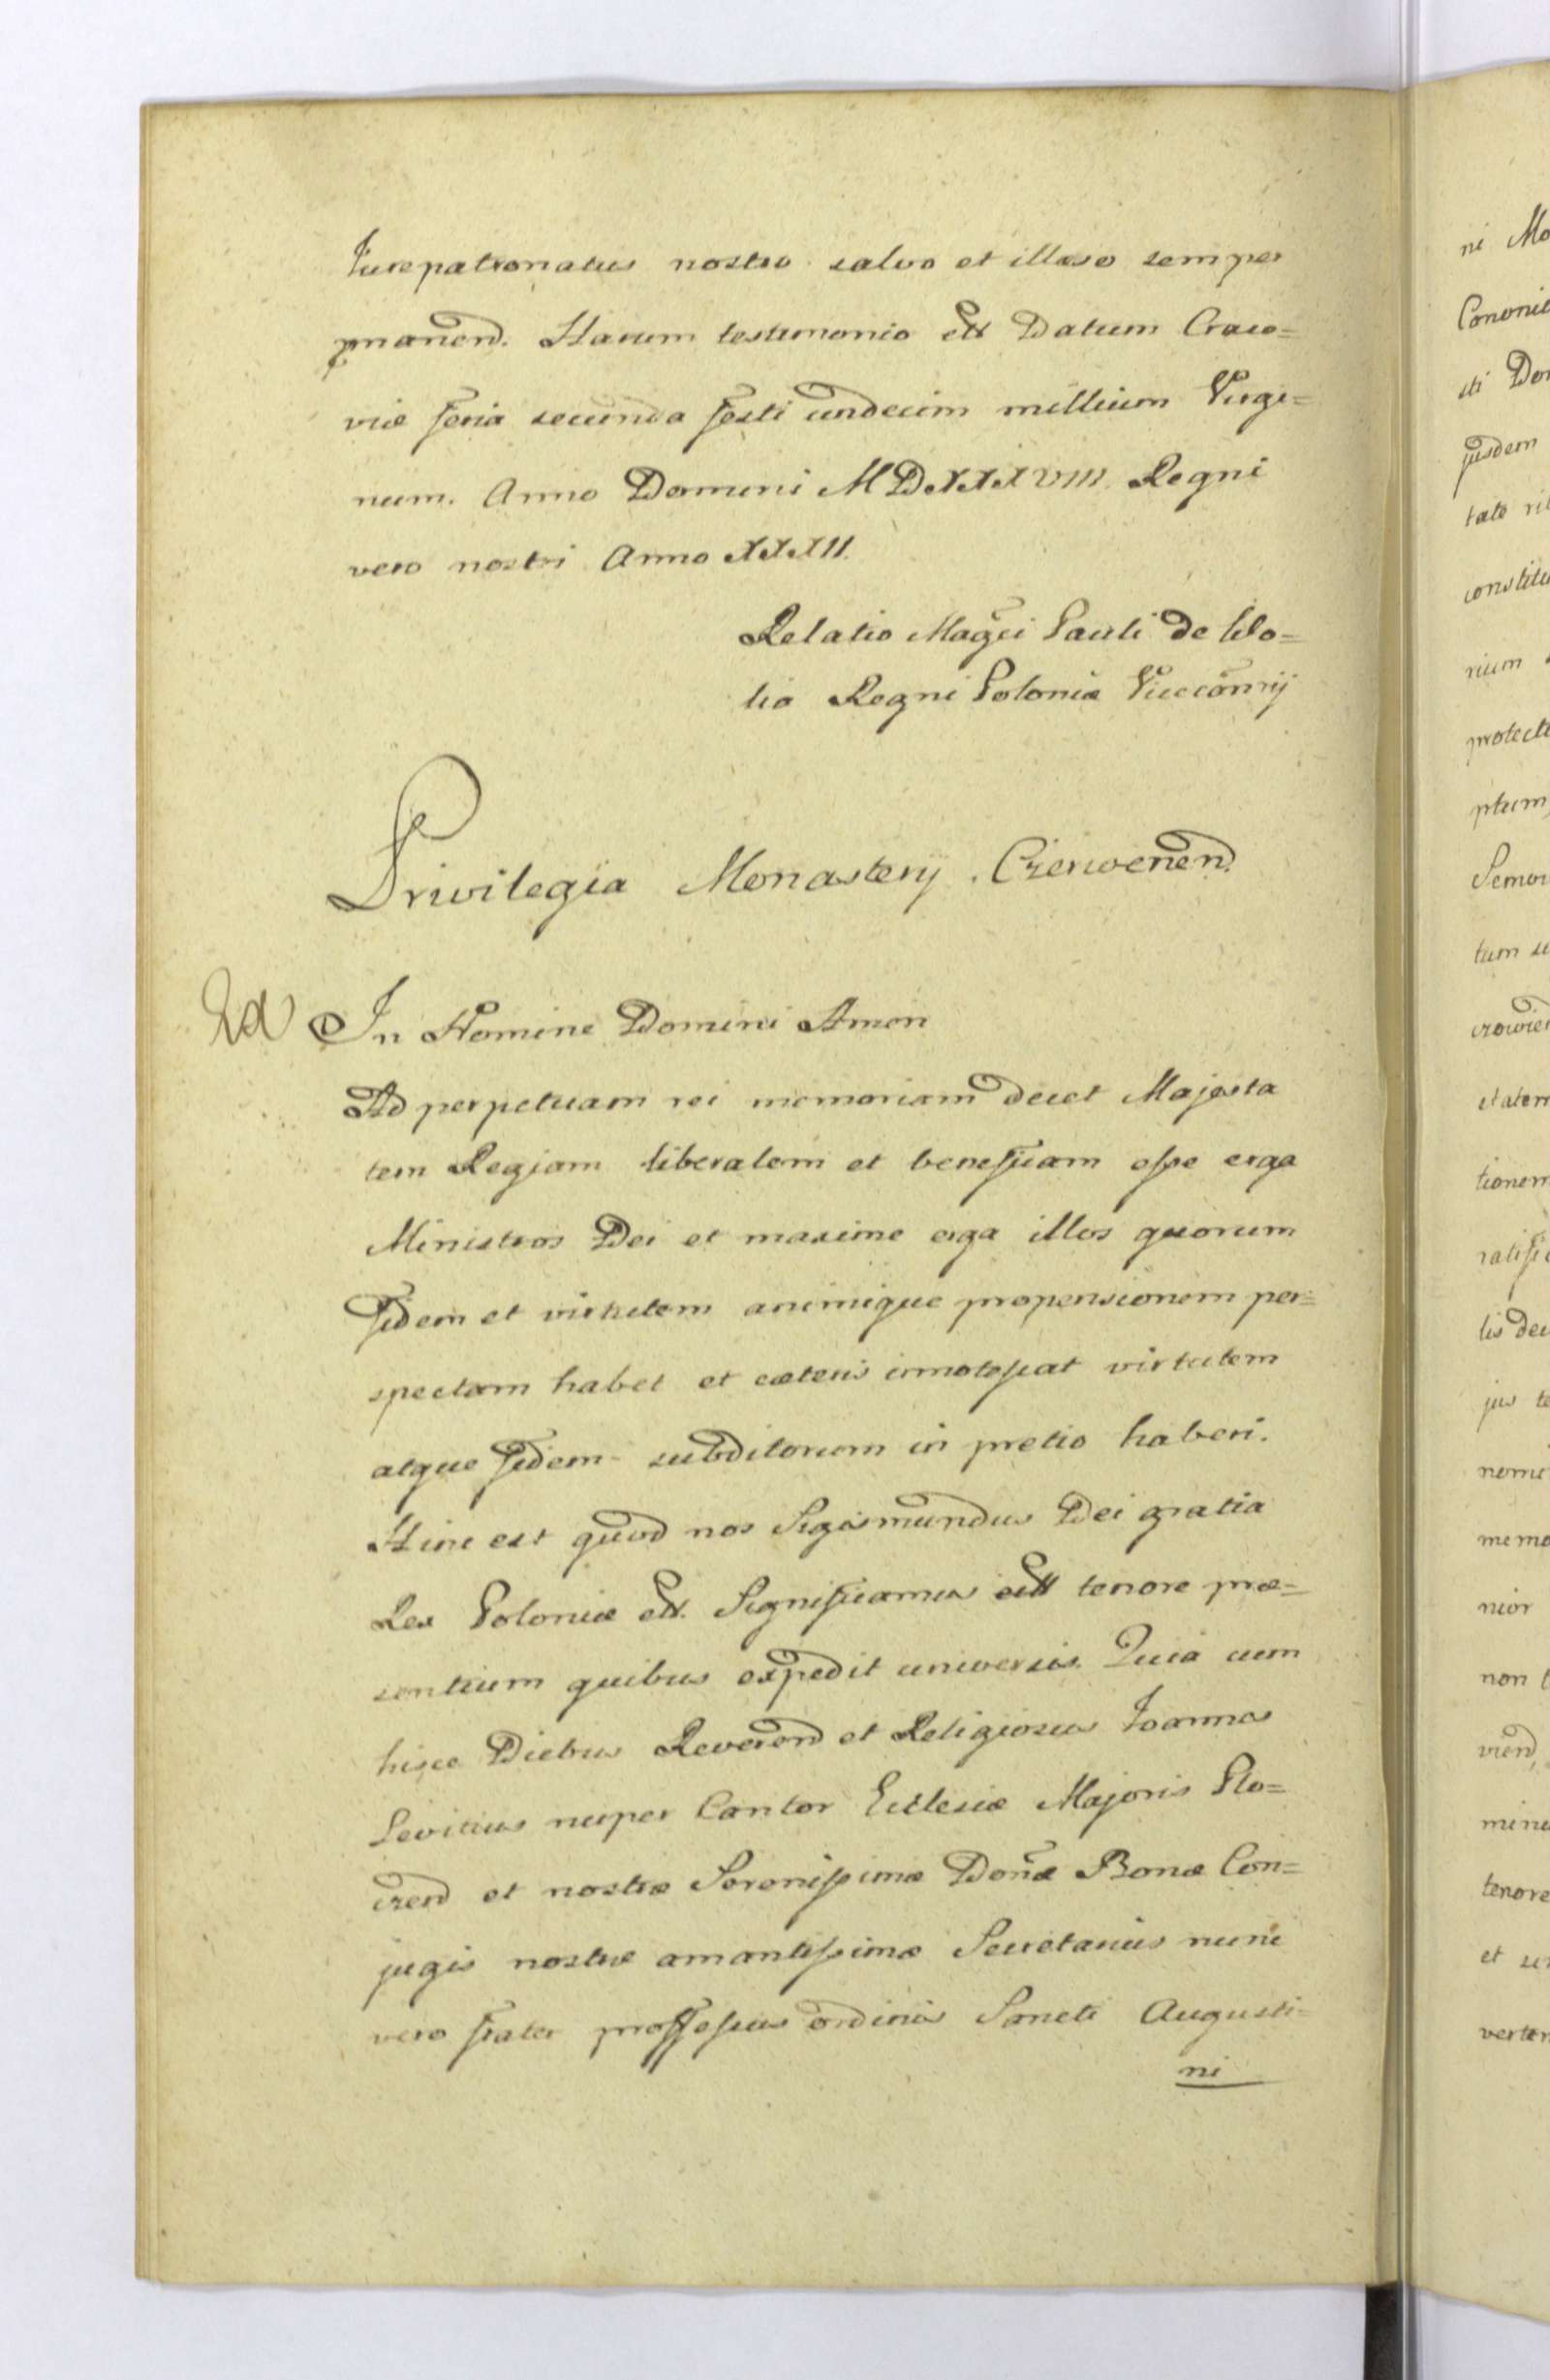 Jurepatronatus nostro salvo et illæso semper
pmanend. Harum testimonio ett Datum Craco=
viæ feria secunda festi undecim millium Virgi=
num. Anno Domini MDXXXVIII Regni
vero nostri Anno XXXII.
Relatio Magci Pauli de Wo=
lia Regni Poloniæ Viceconrij
Privilegia Monastery Czerwenen.
In Nomine Domini Amen
Ad perpetuam rei memoriam decet Majesta
tem Regiam liberalem et beneficam esse erga
Ministros Dei et maxime erga illos quorum
fidem et virtutem animique propensionem per=
spectam habet et cæteris innotescat virtutem
atque fidem subditorum in pretio haberi.
Hinc est quod nos Sigismundus Dei gratia
Rex Poloniæ ett. Significamus ett tenore præ=
sentium quibus expedit universis. Quia cum
hisce Diebus Reverend et Religiosus Joannes
Levitius nuper Cantor Ecclesiæ Majoris Plo=
cien et nostræ Serenissimæ Donæ Bonæ Con=
jugis nostræ amantissimæ Secretarius nunc
vero frater professus ordinis Sancti Augusti=
ni
ni
Cononic
sti
jusdem
tate
constitu
rium
protecti
ptum
tum
tionem
ratific
jus
memo
nior
non
tenore
et